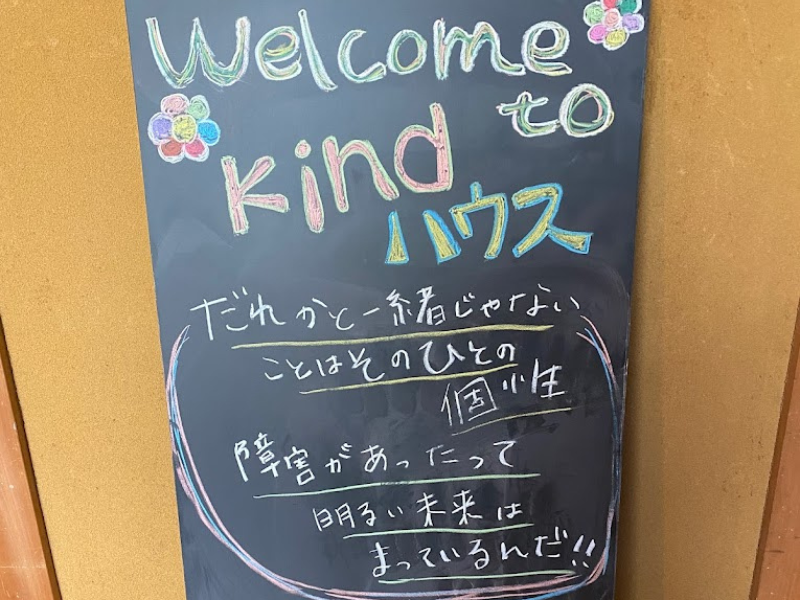 Welcome
to
kind
ハウス
だれかと一緒じゃない
ことはそのひとの
個性
障害があったって
明るい未来は
まっているんだ!!